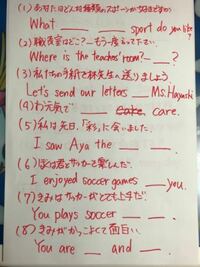 (1) あなたはどんな種類のスポーツが好きですか
What ___ ___ sport do you like?
(2) 職員室はどこ?ーもう一度言って下さい。
Where is the teachers' room?—___?
(3) 私たちの手紙を林先生へ送りましょう。
Let's send our letters ___ Ms.Hayashi
(4) お元気で
___ care.
(5) 私は先日、「彩」に会いました。
I saw Aya the ___ ___.
(6) ぼくは君とサッカーを楽しんだ。
I enjoyed soccer games ___ you.
(7) きみはサッカーがとても上手だ。
You plays soccer ___ ___.
(8) きみがかっこよくて面白い。
You are ___ and ___.